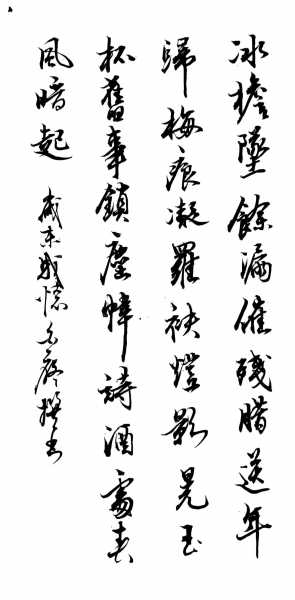 冰檐墜餘漏催殘腊送年
歸梅痕凝羅袂燈影晃玉
杯舊事鎖塵幃詩酒處春
風暗起 歲末懷撰書